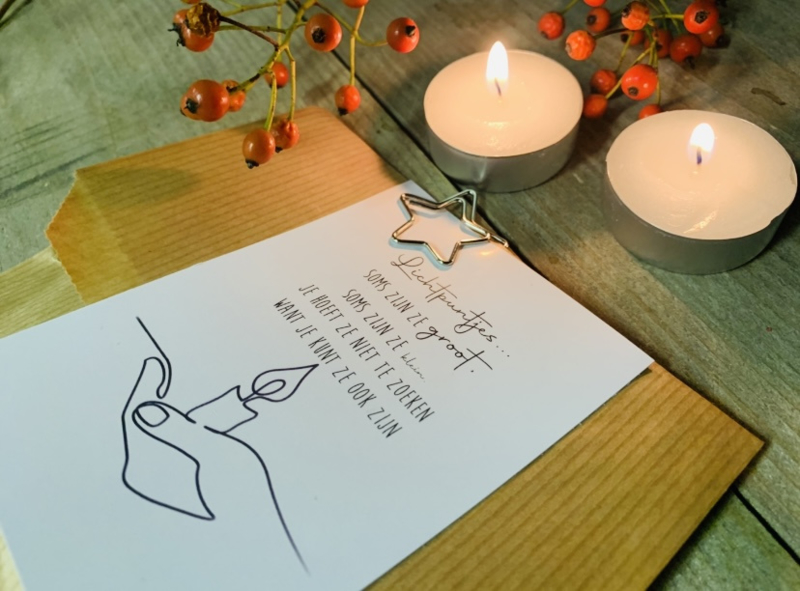 Lichtpuntjes...
SOMS ZIJN ZE groot.
SOMS ZIJN ZE klein
JE HOEFT ZE NIET TE ZOEKEN
WANT JE KUNT ZE OOK ZIJN